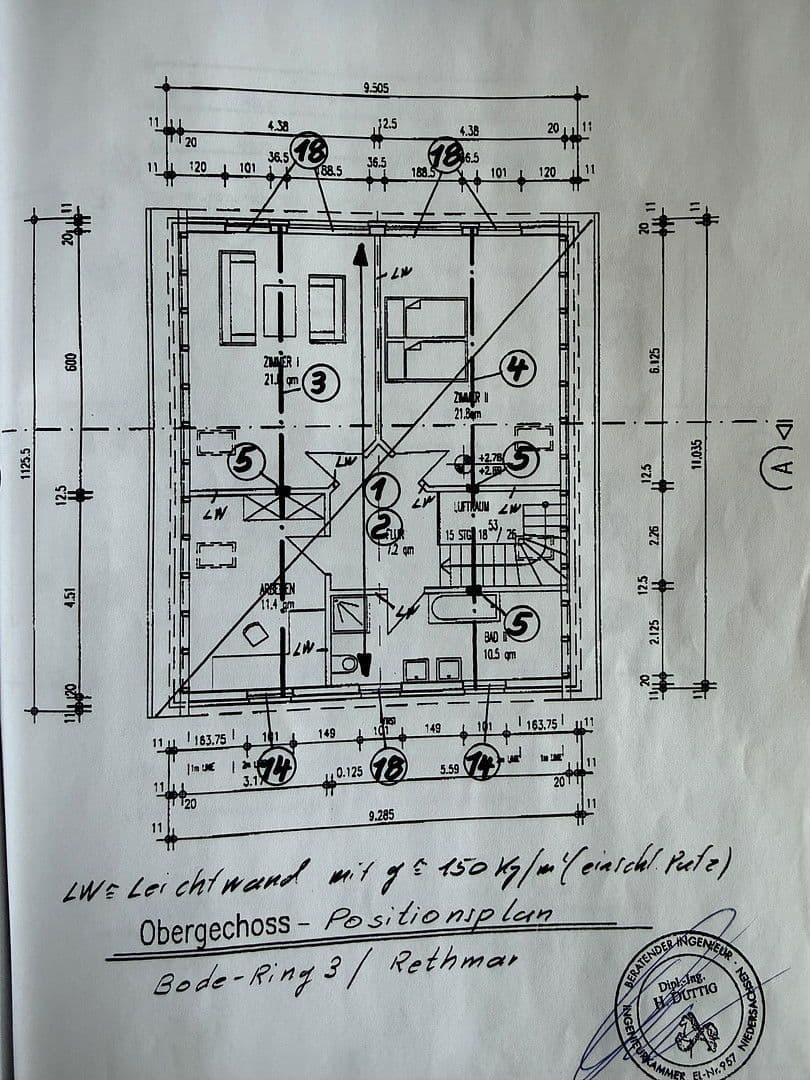 9.505
11 4.38 12.5 4.38 20 11
20
11 120 101 36.5 18 188.5 36.5 188.5 18 36.5 101 120 11
11 20 600 12.5 4.51 20 11
1125.5
11 20 6.125 12.5 2.26 12.5 2.125 20 11
11.035
LW
ZIMMER I
3
4
ZIMMER II
21.8qm
5 LW +2.78 5
1 LW
LW LUFTRAUM LW
2 FLUR
7.2 qm
15 STG 18 53/26
ARBEITEN
11.4 qm
LW
5
BAD II
10.5 qm
LW
A
FIRST
11 163.75 101 149 101 149 101 163.75 11
14 18 14
11 3.17 0.125 5.59 11
20 20
9.285
11 11
LW= Leichtwand mit g ≤ 150 Kg/m² (einschl. Putz)
Obergechoss - Positionsplan
Bode-Ring 3 / Rethmar
BERATENDER INGENIEUR · NIEDERSACHSEN
Dipl.-Ing.
H. DUTTIG
INGENIEURKAMMER El-Nr. 957